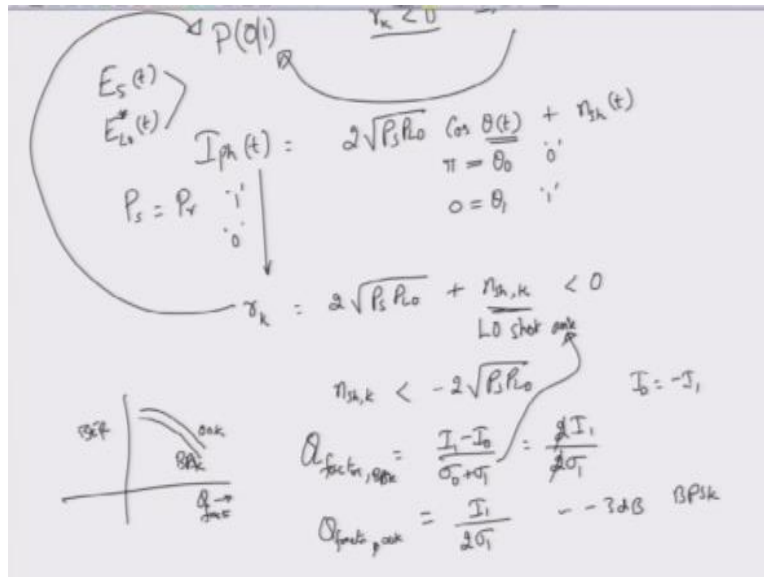 r_k < 0
P(0|1)
E_s(t)
E*_Lo(t)
I_ph(t) = 2√P_sP_Lo Cos θ(t) + n_sh(t)
π = θ_0 '0'
P_s = P_r '1'
0 = θ_1 '1'
'0'
r_k = 2√P_sP_Lo + n_sh,k < 0
LO shot
n_sh,k < -2√P_sP_Lo I_0 = -I_1
BER
OOK
BPSK
Q factor
Q_factor,BPSK = (I_1 - I_0)/(σ_0 + σ_1) = 2I_1/2σ_1
Q_factor,OOK = I_1/2σ_1 -- 3dB BPSK